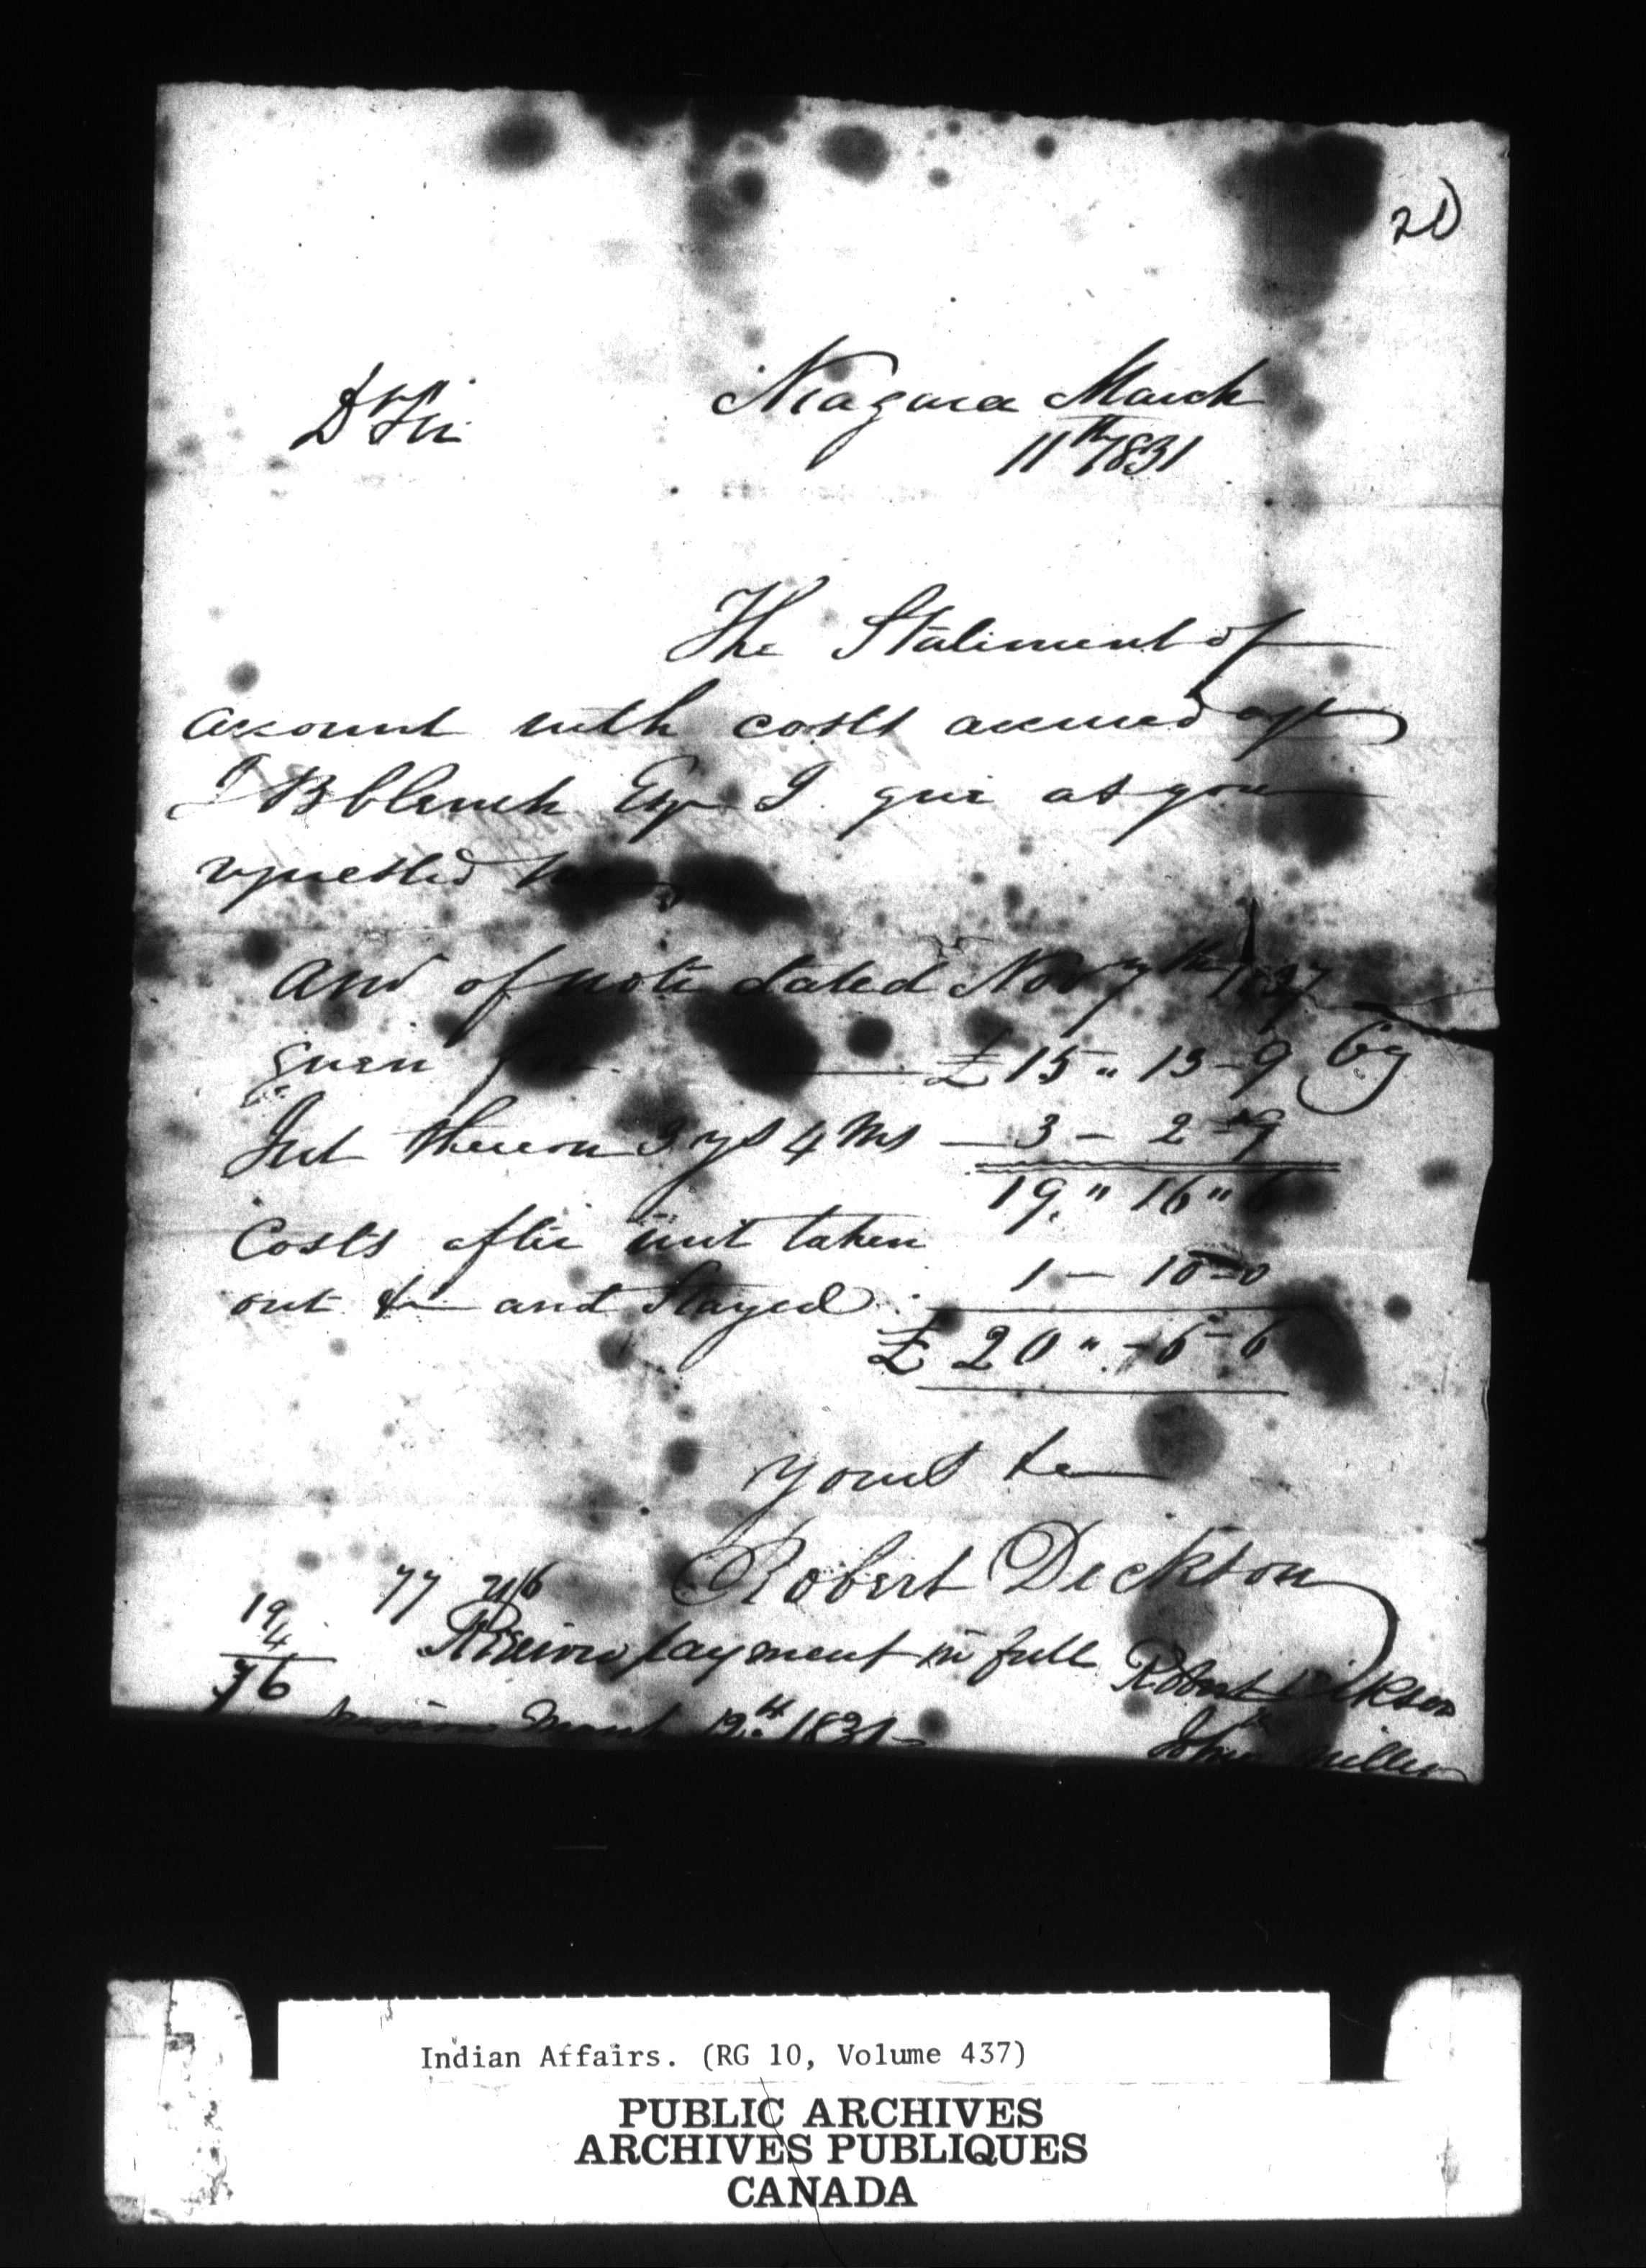 20
Niagara March
Dr Sir
11th 1831
The Statement of
account with costs accrued agt
J B Clench Esqr I give as you
requested
Amt of note dated Nov 7th 1827
given for £ 15 " 13 - 9 Cy
Int thereon 3 ys 4 Ms 3 - 2 - 9
19 " 16 " 6
Costs after writ taken
out &c and Stayed 1 - 10 - 0
£ 20 " - 6 - 6
yours &c
Robert Dickson
77
19
4
76
Received payment in full Robert Dickson
March 12th 1831
John Miller
Indian Affairs. (RG 10, Volume 437)
PUBLIC ARCHIVES
ARCHIVES PUBLIQUES
CANADA